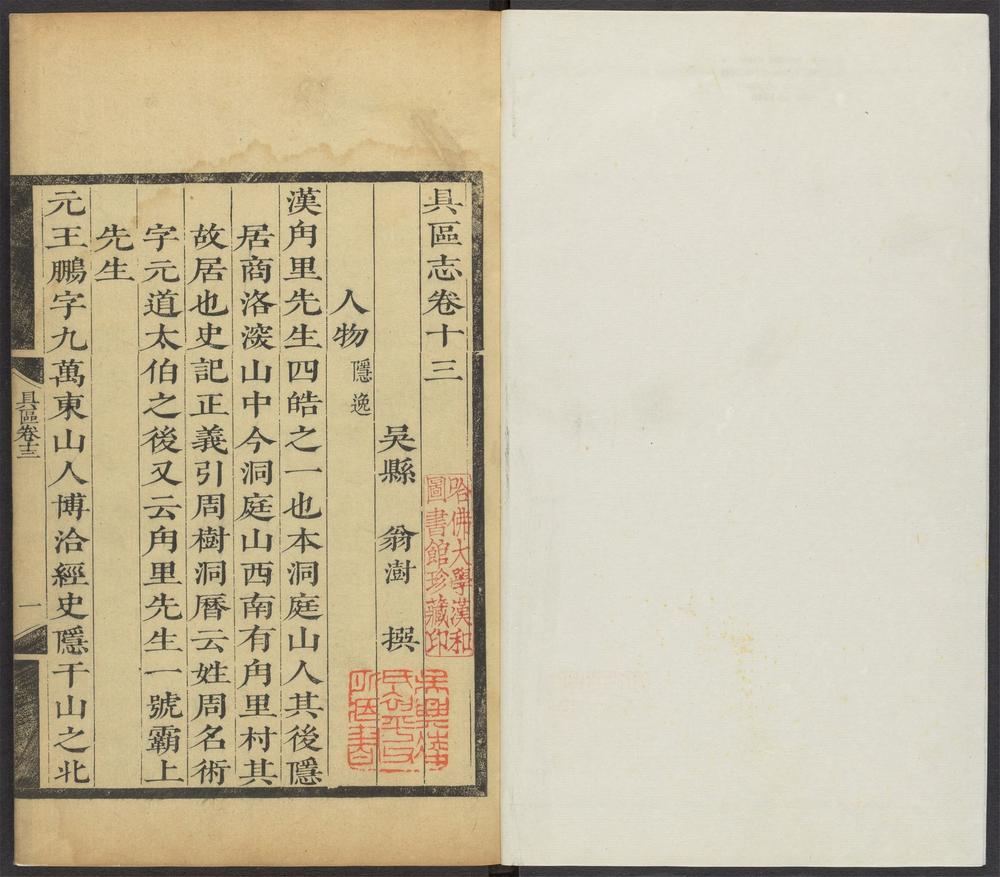 具區志卷十三
吳� 翁澍 撰
人物 隱逸
漢甪里先生四皓之一也本洞庭山人其後隱
居商洛深山中今洞庭山西南有甪里村其
故居也史記正義引周樹洞曆云姓周名術
字元道太伯之後又云甪里先生一號霸上
先生
元王鵬字九萬東山人博洽經史隱于山之北
具區卷十三
一
哈佛大學漢和
圖書館珍藏印